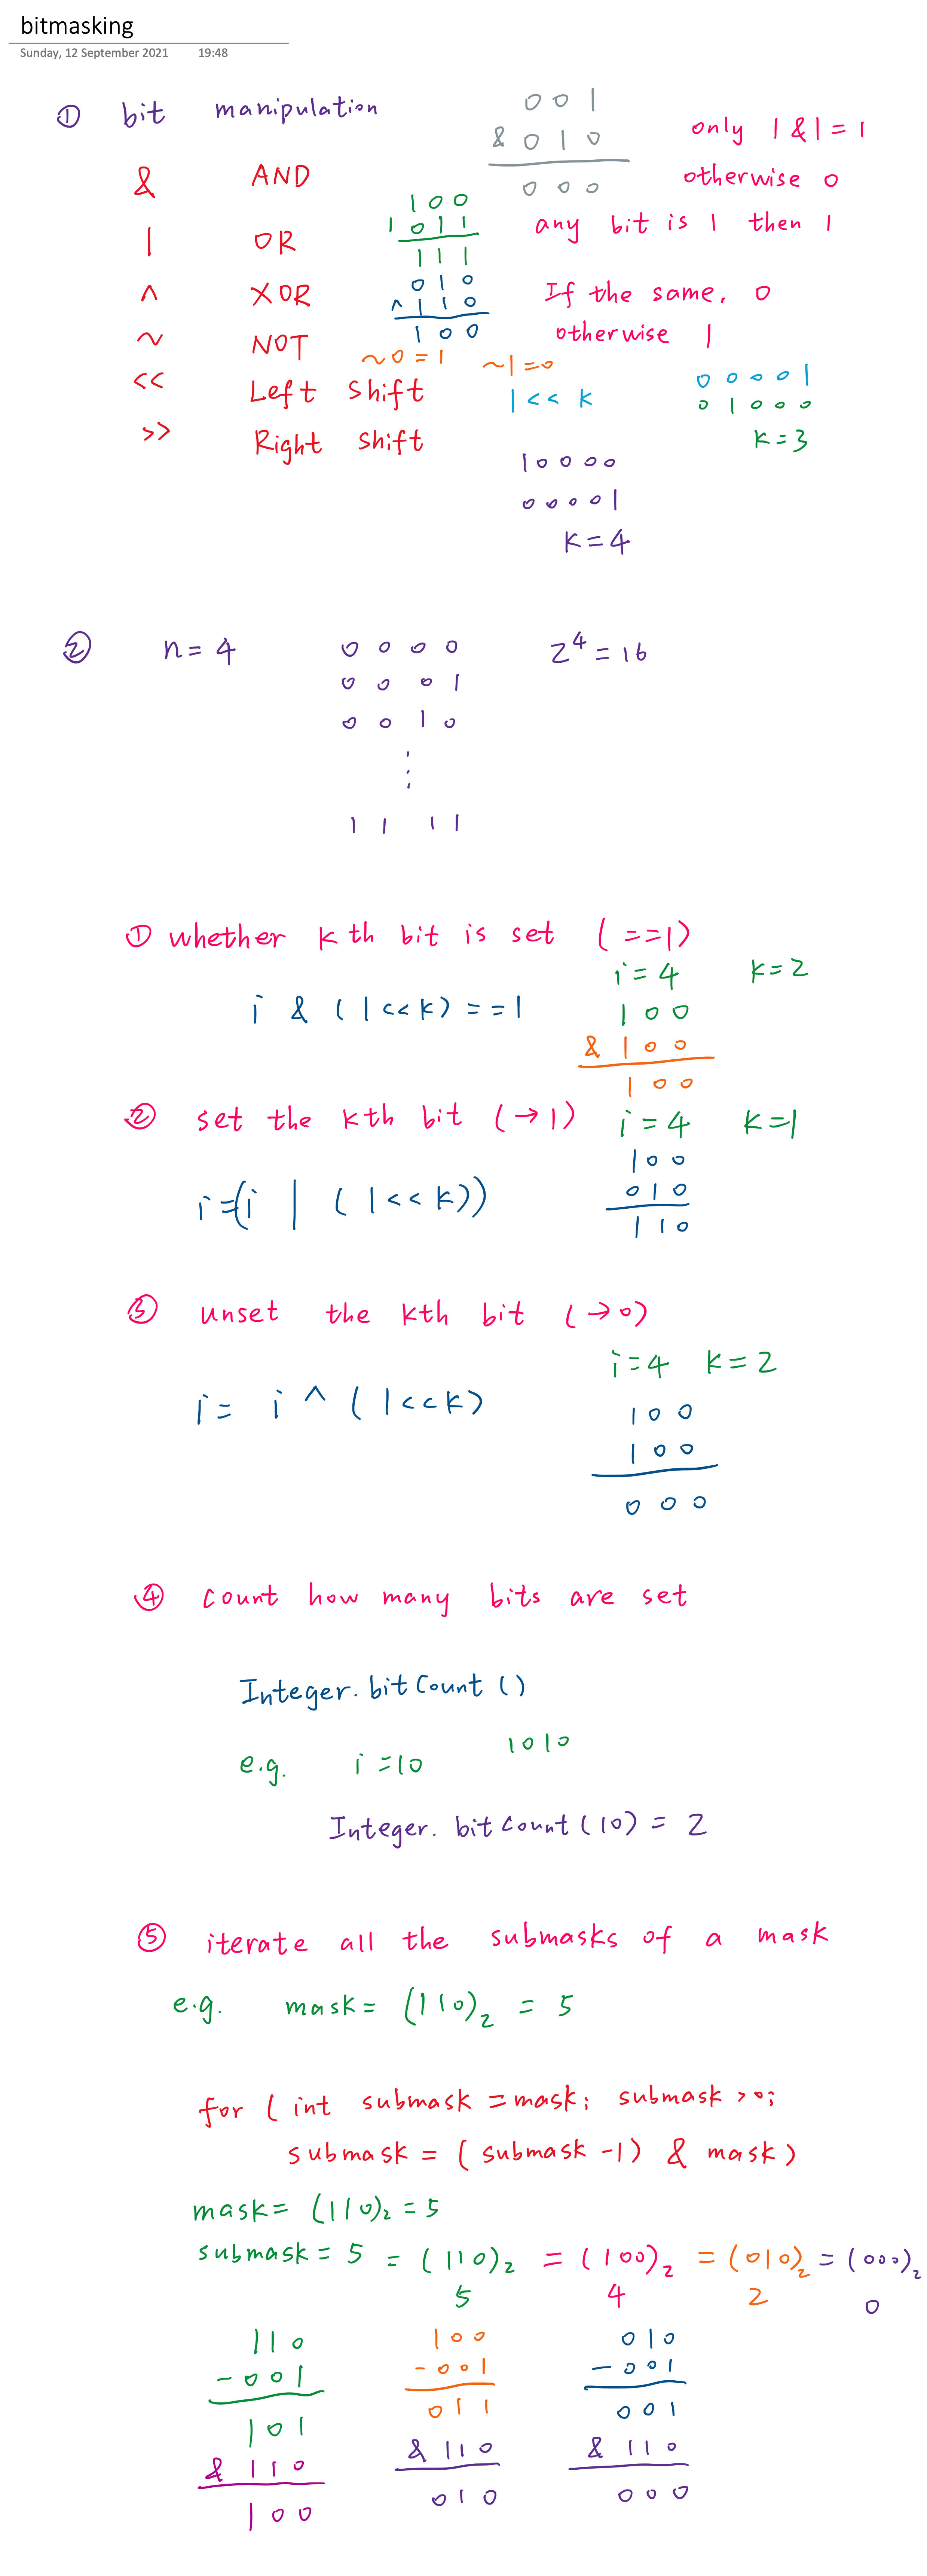 bitmasking
Sunday, 12 September 2021 19:48
① bit manipulation
0 0 1
& 0 1 0
0 0 0
only 1 & 1 = 1
otherwise 0
& AND
1 0 0
| 0 1 1
1 1 1
any bit is 1 then 1
| OR
0 1 0
^ 1 1 0
1 0 0
If the same, 0
otherwise 1
^ XOR
~ NOT ~0=1 ~1=0
<< Left shift 1<< k
0 0 0 0 1
0 1 0 0 0
k=3
>> Right shift
1 0 0 0 0
0 0 0 0 1
k=4
② n=4
0 0 0 0
0 0 0 1
0 0 1 0
⋮
1 1 1 1
2⁴ = 16
① whether kth bit is set (==1)
i & (1<<k) ==1
i=4 k=2
1 0 0
& 1 0 0
1 0 0
② set the kth bit (→1)
i=(i | (1<<k))
i=4 k=1
1 0 0
0 1 0
1 1 0
③ unset the kth bit (→0)
i= i ^ (1<<k)
i=4 k=2
1 0 0
1 0 0
0 0 0
④ count how many bits are set
Integer.bitCount()
e.g. i=10 1010
Integer.bitCount(10) = 2
⑤ iterate all the submasks of a mask
e.g. mask= (110)₂ = 5
for ( int submask =mask; submask >0;
submask = (submask -1) & mask)
mask= (110)₂ = 5
submask = 5 = (110)₂ = (100)₂ = (010)₂ = (000)₂
5 4 2 0
1 1 0
- 0 0 1
1 0 1
& 1 1 0
1 0 0
1 0 0
- 0 0 1
0 1 1
& 1 1 0
0 1 0
0 1 0
- 0 0 1
0 0 1
& 1 1 0
0 0 0